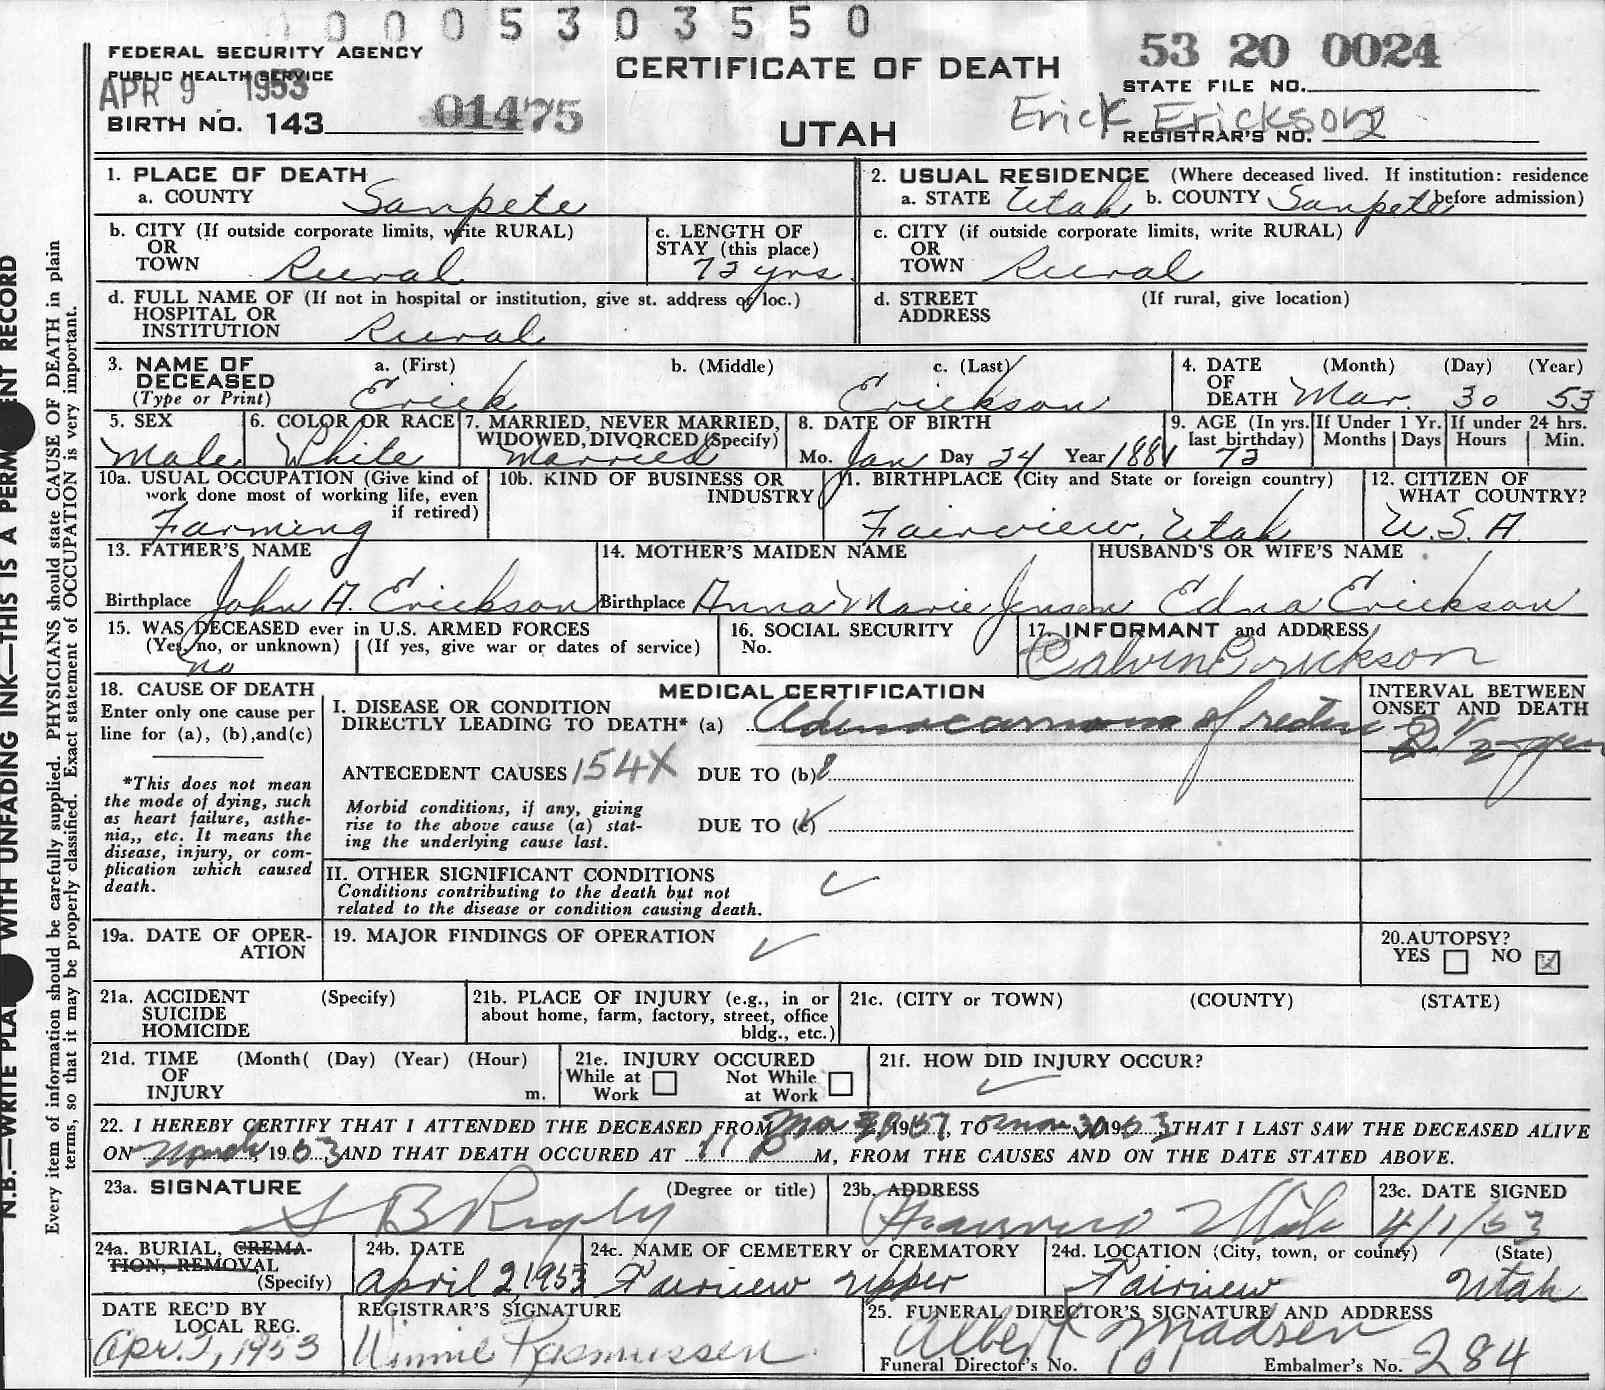 0 0 0 5 3 0 3 5 5 0
FEDERAL SECURITY AGENCY
PUBLIC HEALTH SERVICE
APR 9 1953
BIRTH NO. 143
01475
CERTIFICATE OF DEATH
UTAH
53 20 0024
STATE FILE NO.
Erick Erickson
REGISTRAR'S NO. 2
1. PLACE OF DEATH
a. COUNTY Sanpete
2. USUAL RESIDENCE (Where deceased lived. If institution: residence before admission)
a. STATE Utah b. COUNTY Sanpete
b. CITY (If outside corporate limits, write RURAL)
OR
TOWN Rural
c. LENGTH OF
STAY (this place)
72 yrs.
c. CITY (if outside corporate limits, write RURAL)
OR
TOWN Rural
d. FULL NAME OF (If not in hospital or institution, give st. address of loc.)
HOSPITAL OR
INSTITUTION Rural
d. STREET (If rural, give location)
ADDRESS
3. NAME OF DECEASED
(Type or Print)
a. (First) b. (Middle) c. (Last)
Erick Erickson
4. DATE OF DEATH
(Month) (Day) (Year)
Mar. 30 53
5. SEX
Male
6. COLOR OR RACE
White
7. MARRIED, NEVER MARRIED,
WIDOWED, DIVORCED (Specify)
Married
8. DATE OF BIRTH
Mo. Jan Day 24 Year 1881
9. AGE (In yrs. last birthday)
72
If Under 1 Yr. If under 24 hrs.
Months Days Hours Min.
10a. USUAL OCCUPATION (Give kind of
work done most of working life, even
if retired)
Farming
10b. KIND OF BUSINESS OR
INDUSTRY
11. BIRTHPLACE (City and State or foreign country)
Fairview, Utah
12. CITIZEN OF
WHAT COUNTRY?
U.S.A
13. FATHER'S NAME
Birthplace John A. Erickson
14. MOTHER'S MAIDEN NAME
Birthplace Anna Marie Jensen
HUSBAND'S OR WIFE'S NAME
Edna Erickson
15. WAS DECEASED ever in U.S. ARMED FORCES
(Yes, no, or unknown) (If yes, give war or dates of service)
no
16. SOCIAL SECURITY
No.
17. INFORMANT and ADDRESS
Calvin Erickson
18. CAUSE OF DEATH
Enter only one cause per
line for (a), (b), and (c)
*This does not mean
the mode of dying, such
as heart failure, asthe-
nia,, etc. It means the
disease, injury, or com-
plication which caused
death.
MEDICAL CERTIFICATION
I. DISEASE OR CONDITION
DIRECTLY LEADING TO DEATH* (a) Adenocarcinoma of rectum
INTERVAL BETWEEN
ONSET AND DEATH
2 1/2 years
ANTECEDENT CAUSES 154X DUE TO (b)
Morbid conditions, if any, giving
rise to the above cause (a) stat-
ing the underlying cause last.
DUE TO (c)
II. OTHER SIGNIFICANT CONDITIONS
Conditions contributing to the death but not
related to the disease or condition causing death.
19a. DATE OF OPER-
ATION
19. MAJOR FINDINGS OF OPERATION
20. AUTOPSY?
YES NO
21a. ACCIDENT (Specify)
SUICIDE
HOMICIDE
21b. PLACE OF INJURY (e.g., in or
about home, farm, factory, street, office
bldg., etc.)
21c. (CITY or TOWN) (COUNTY) (STATE)
21d. TIME (Month( (Day) (Year) (Hour)
OF
INJURY m.
21e. INJURY OCCURED
While at Work Not While at Work
21f. HOW DID INJURY OCCUR?
22. I HEREBY CERTIFY THAT I ATTENDED THE DECEASED FROM 19 , TO Mar 30 1953 THAT I LAST SAW THE DECEASED ALIVE
ON March, 1953 AND THAT DEATH OCCURED AT 11 P M, FROM THE CAUSES AND ON THE DATE STATED ABOVE.
23a. SIGNATURE (Degree or title)
23b. ADDRESS
Utah
23c. DATE SIGNED
4/1/53
24a. BURIAL, CREMA-
TION, REMOVAL
(Specify)
24b. DATE
April 2, 1953
24c. NAME OF CEMETERY or CREMATORY
Fairview Upper
24d. LOCATION (City, town, or county) (State)
Fairview Utah
DATE REC'D BY
LOCAL REG.
Apr. 2, 1953
REGISTRAR'S SIGNATURE
Winnie Rasmussen
25. FUNERAL DIRECTOR'S SIGNATURE AND ADDRESS
Albert Madsen
Funeral Director's No. 101 Embalmer's No. 284
N.B.—WRITE PLA WITH UNFADING INK—THIS IS A PERM ENT RECORD
Every item of information should be carefully supplied. PHYSICIANS should state CAUSE OF DEATH in plain
terms, so that it may be properly classified. Exact statement of OCCUPATION is very important.